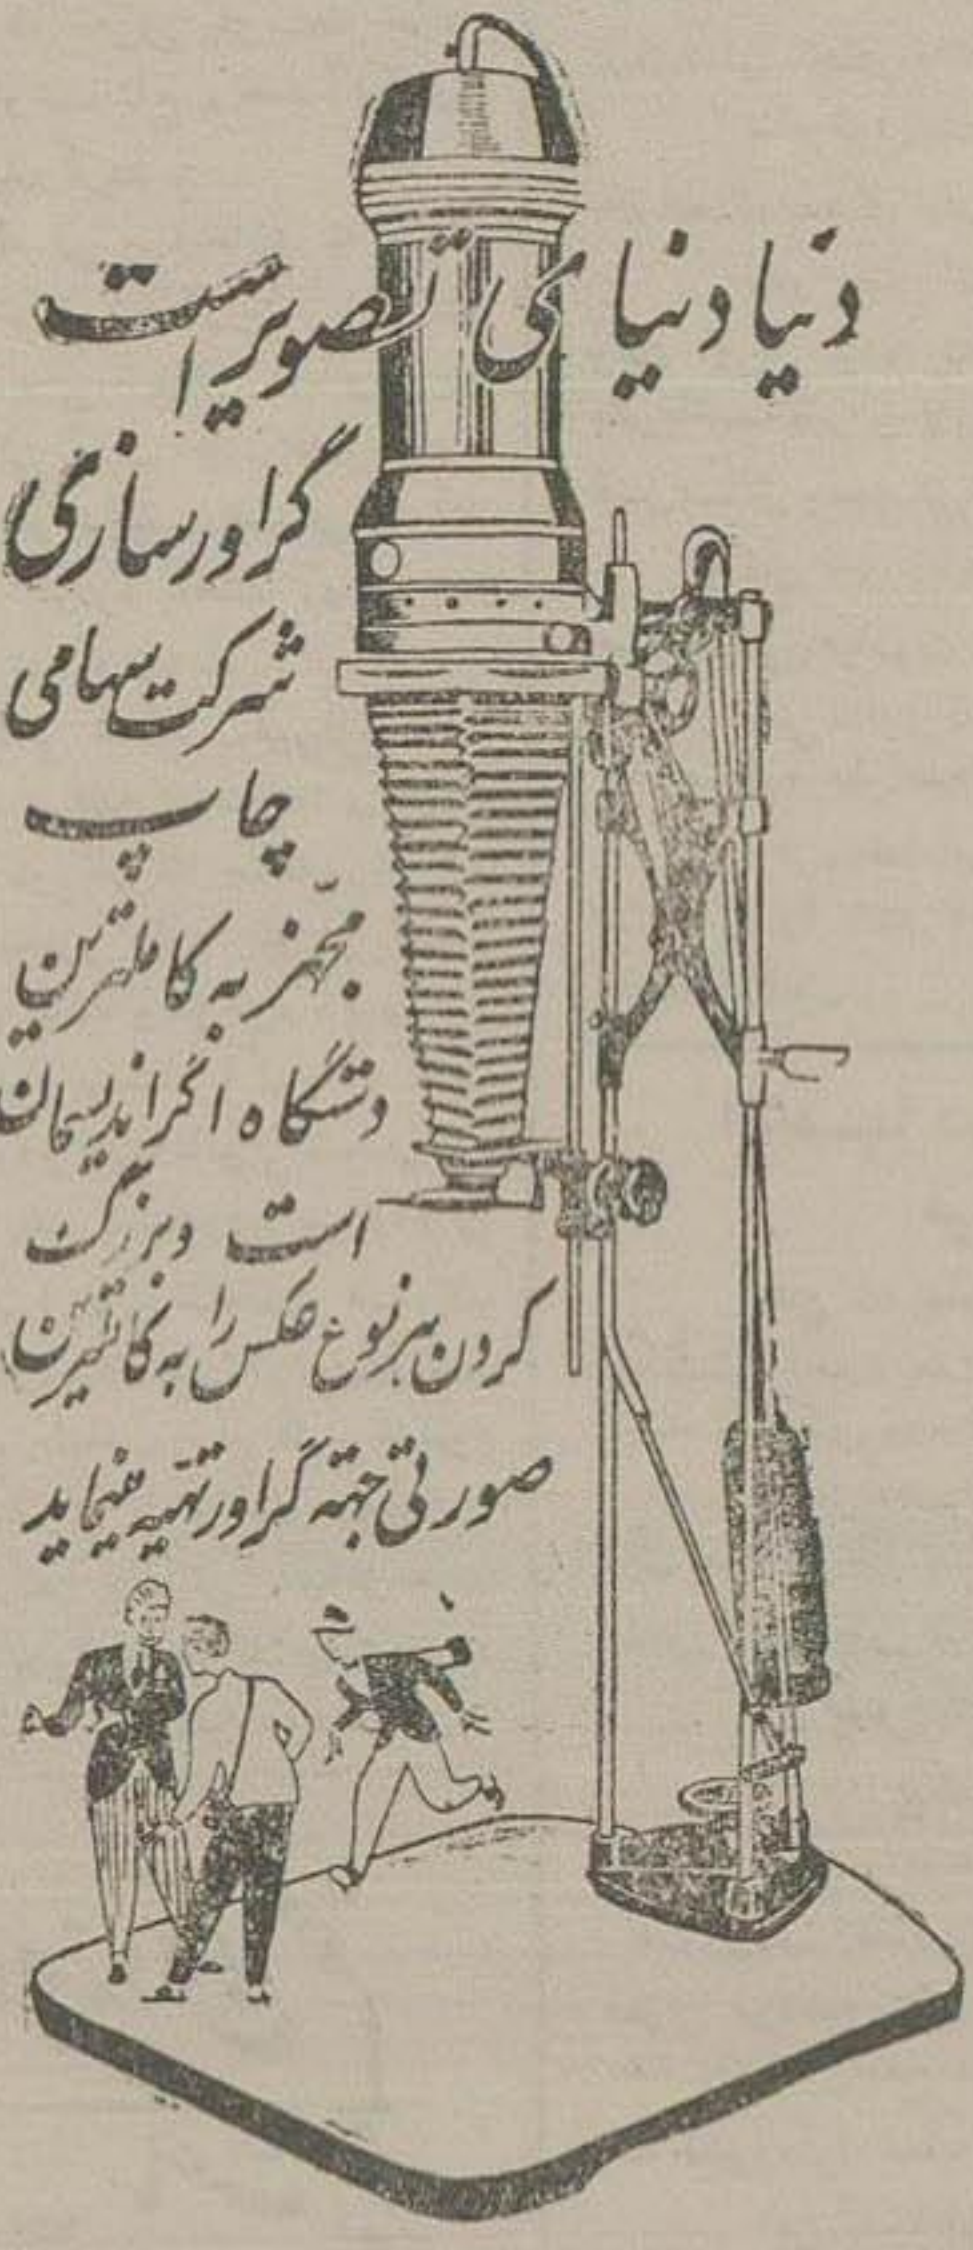 دنیا دنیای تصویر است
گراورسازی
شرکت سهامی
چاپ
مجهّز به کاملترین
دستگاه اگراندیسمان
است و بزرگ
کردن هر نوع عکس را به کاملترین
صورتی جهته گراور تهیه مینماید